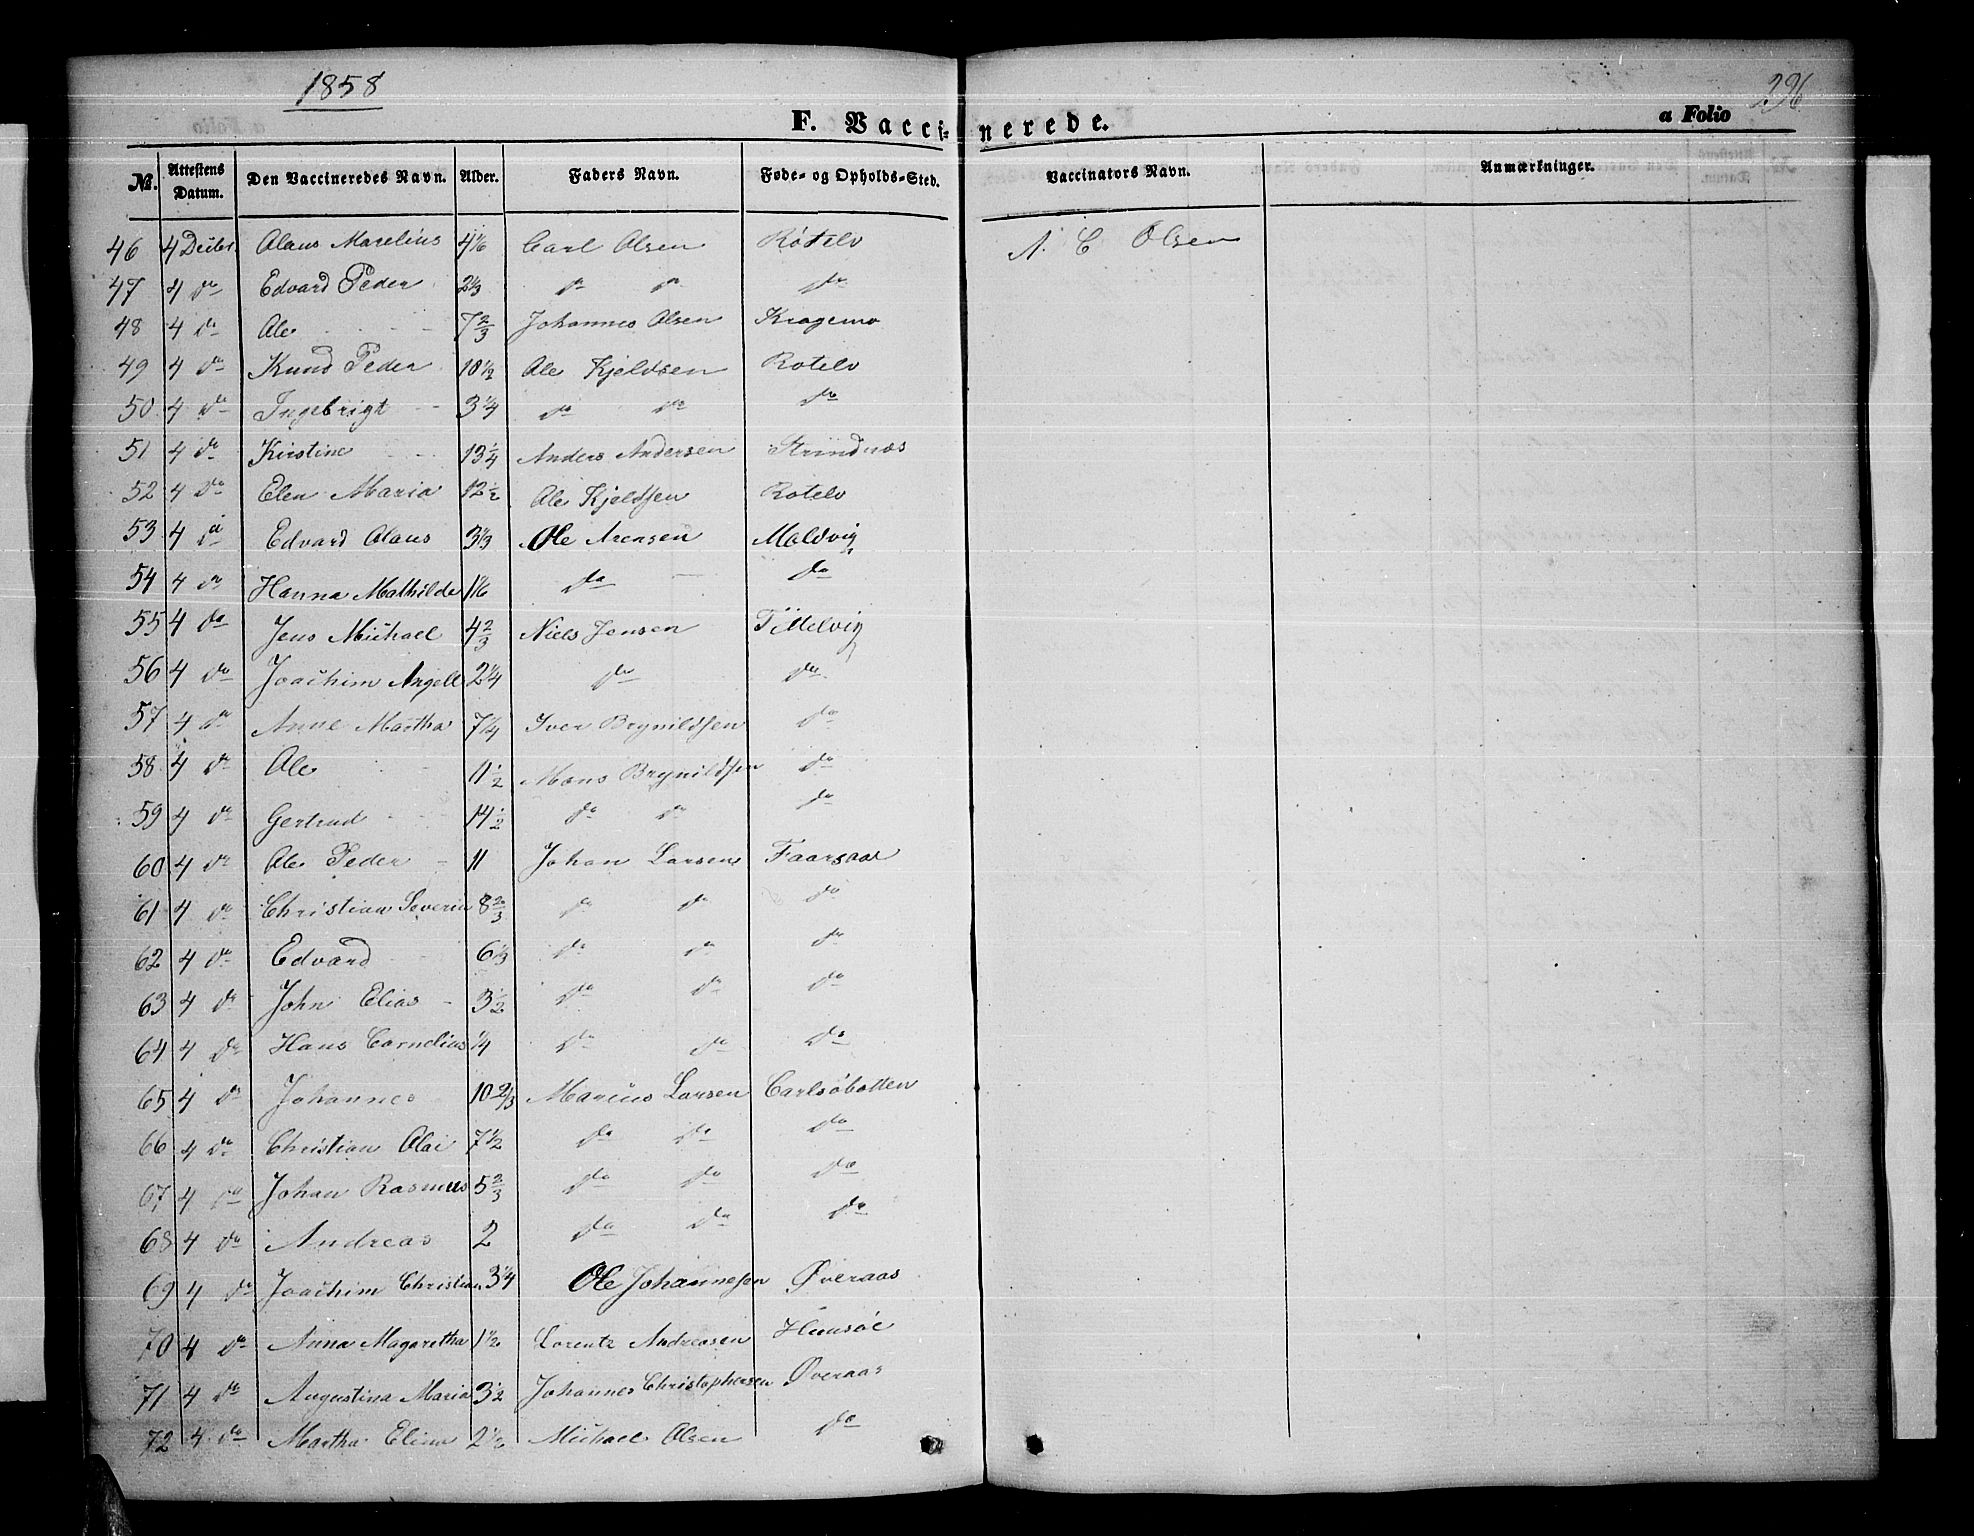 1858
296
F. Vaccinerede. a Folio
No. Attestens Datum. Den Vaccineredes Navn. Alder. Faders Navn. Føde- og Opholds-Sted. Vaccinators Navn. Anmærkninger.
46 4 Decbr. Olaus Marelius 4 1/6 Carl Olsen Røtelv N. C Olsen
47 4 do Edvard Peder 2 1/3 do do do
48 4 do Ole 7 2/3 Johannes Olsen Kragemo
49 4 do Knud Peder 10 1/2 Ole Kjeldsen Rotelv
50 4 do Ingebrigt 3 1/4 do do do
51 4 do Kirstine 13 1/4 Anders Andersen Strindnæs
52 4 do Elen Maria 12 1/2 Ole Kjeldsen Rotelv
53 4 do Edvard Olaus 3 1/3 Ole Arensen Maldvig
54 4 do Hanna Mathilde 1 1/6 do do
55 4 do Jens Michael 4 2/3 Niels Jensen Tittelvig
56 4 do Joachim Angell 2 1/4 do do
57 4 do Anne Martha 7 1/4 Iver Brynildsen do
58 4 do Ole 11 1/2 Mons Brynildsen do
59 4 do Gertrud 14 1/2 do do do
60 4 do Ole Peder 11 Johan Larsen Faarsaae
61 4 do Christian Severin 8 2/3 do do do
62 4 do Edvard 6 1/3 do do do
63 4 do John Elias 3 1/2 do do do
64 4 do Hans Cornelius 1/4 do do do
65 4 do Johannes 10 2/3 Marcus Larsen Carlsøbotten
66 4 do Christian Olai 7 1/2 do do do
67 4 do Johan Rasmus 5 2/3 do do do
68 4 do Andreas 2 do do do
69 4 do Joachim Christian 3 1/4 Ole Johannesen Øveraas
70 4 do Anna Magaretha 1 1/2 Lorentz Andreasen
71 4 do Augustina Maria 3 1/2 Johannes Christophersen Øveraas
72 4 do Martha Elina 2 1/6 Michael Olsen do